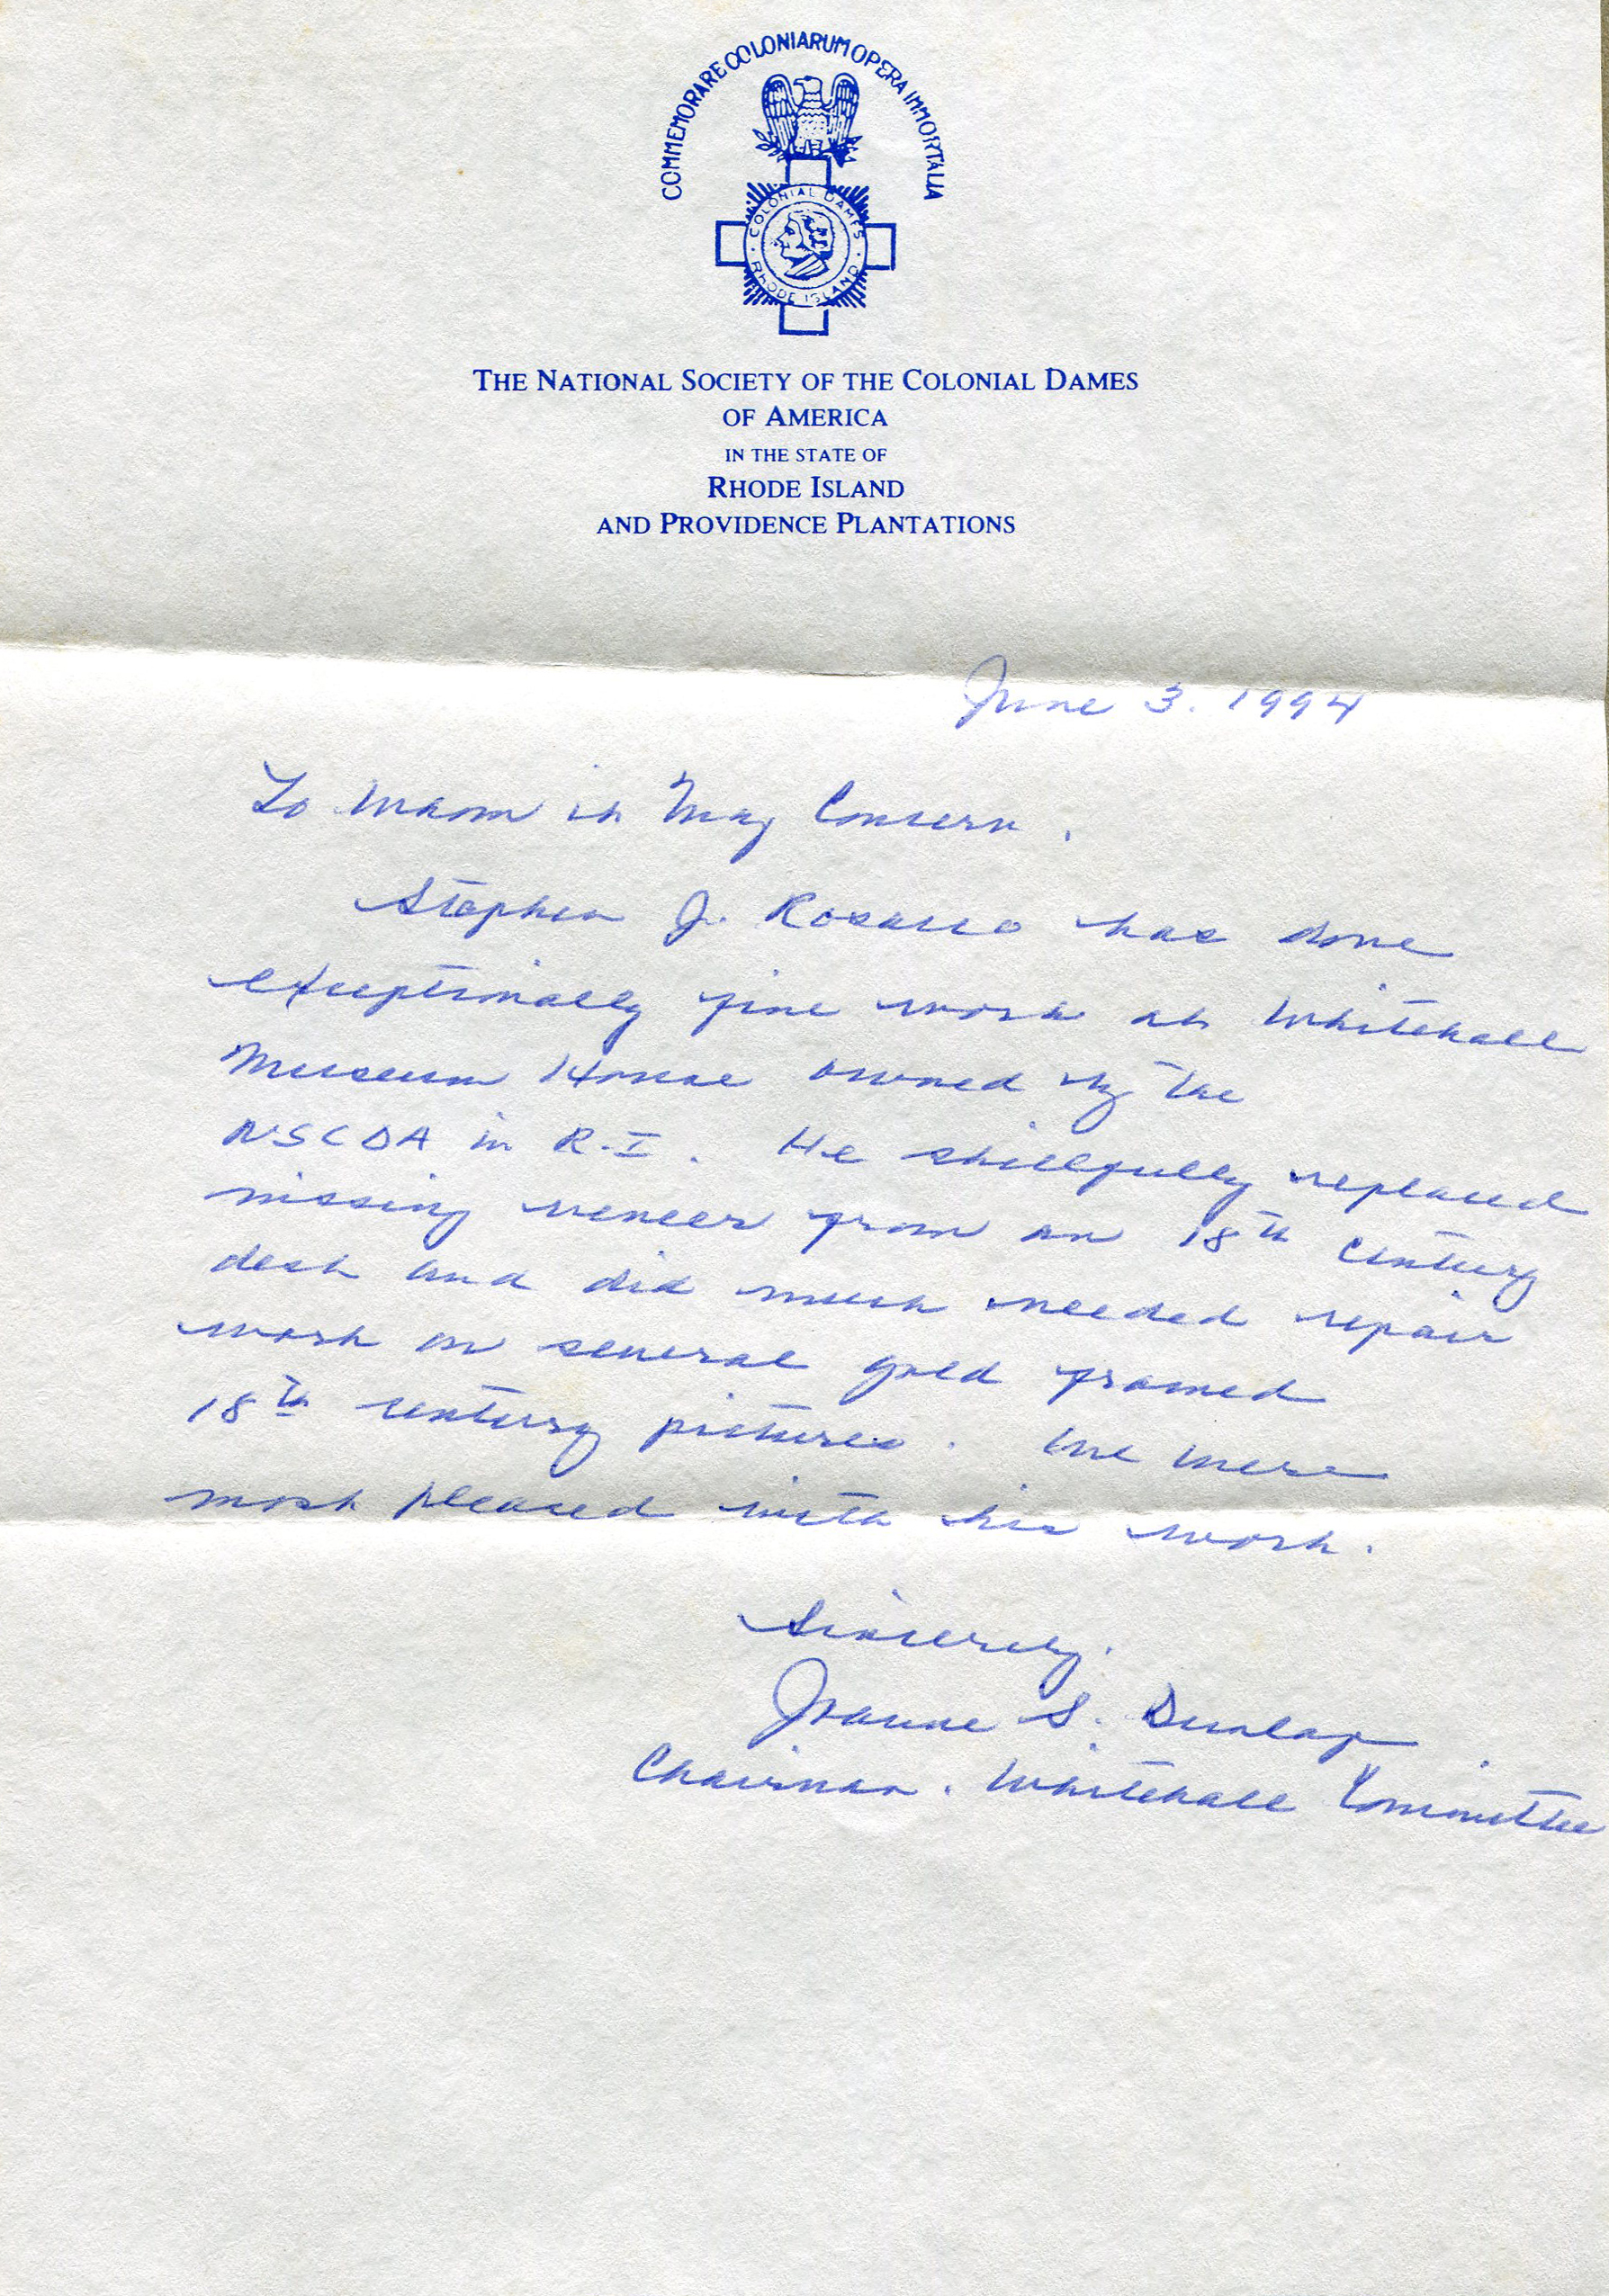 COMMEMORARE COLONIARUM OPERA IMMORTALIA
COLONIAL DAMES
RHODE ISLAND
THE NATIONAL SOCIETY OF THE COLONIAL DAMES
OF AMERICA
IN THE STATE OF
RHODE ISLAND
AND PROVIDENCE PLANTATIONS
June 3. 1994
To Whom it May Concern.
Stephen J. has done
exceptionally fine work at Whitehall
Museum House owned by the
NSCDA in R.I. He skillfully replaced
missing veneer from an 18th Century
desk and did much needed repair
work on several gold framed
18th century pictures. We were
most pleased with his work.
Sincerely.
Joanne S. Dunlap
Chairman. Whitehall Committee